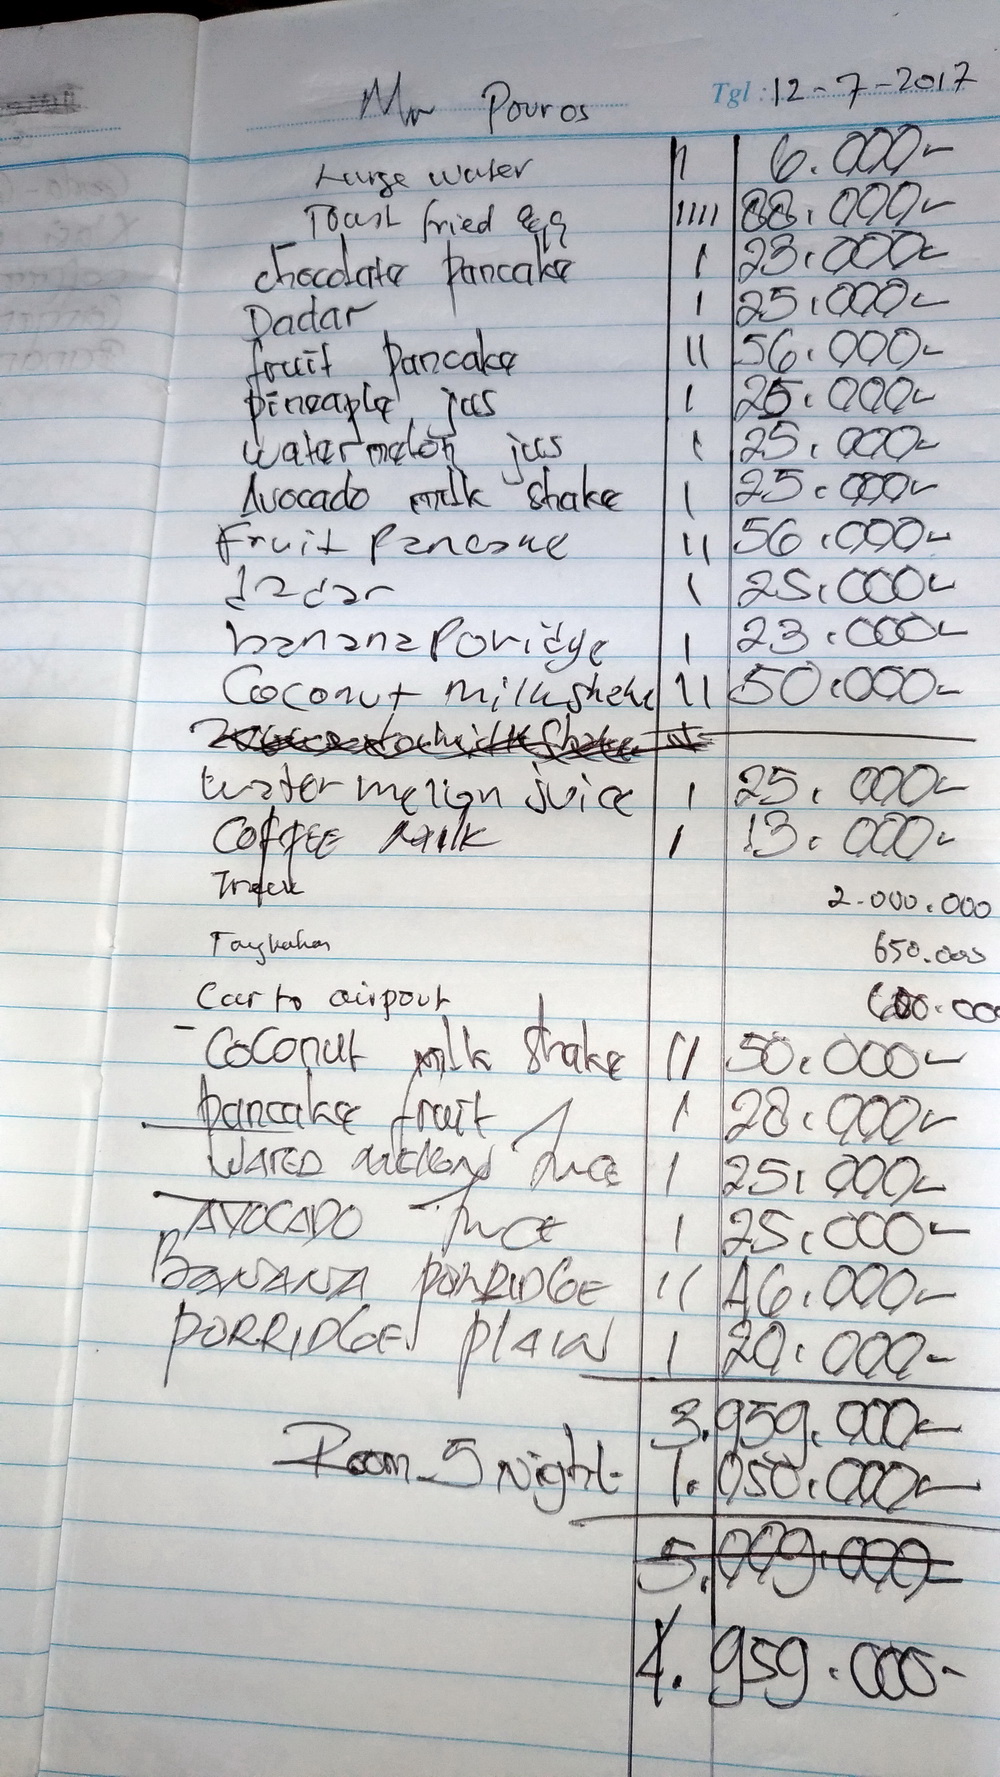 Mr Pouros Tgl : 12-7-2017
Large water I 6.000-
Toast fried egg IIII 88.000-
chocolate pancake I 23.000-
Dadar I 25.000-
fruit pancake II 56.000-
pineaple jus I 25.000-
watermelon jus I 25.000-
Avocado milk shake I 25.000-
Fruit Pancake II 56.000-
dadar I 25.000-
banana Poridge I 23.000-
Coconut milk shake II 50.000-
water melign juice I 25.000-
COFFEE milk I 13.000-
2.000.000
650.000
Car to airpout 600.000
- Coconut milk shake II 50.000-
pancake fruit I 28.000-
I 25.000-
AVOCADO Juice I 25.000-
BANANA PORRIDGE II 46.000-
PORRIDGE PLAIN I 20.000-
3.959.000-
Room 5 Night 1.050.000-
5.009.000-
4.959.000-